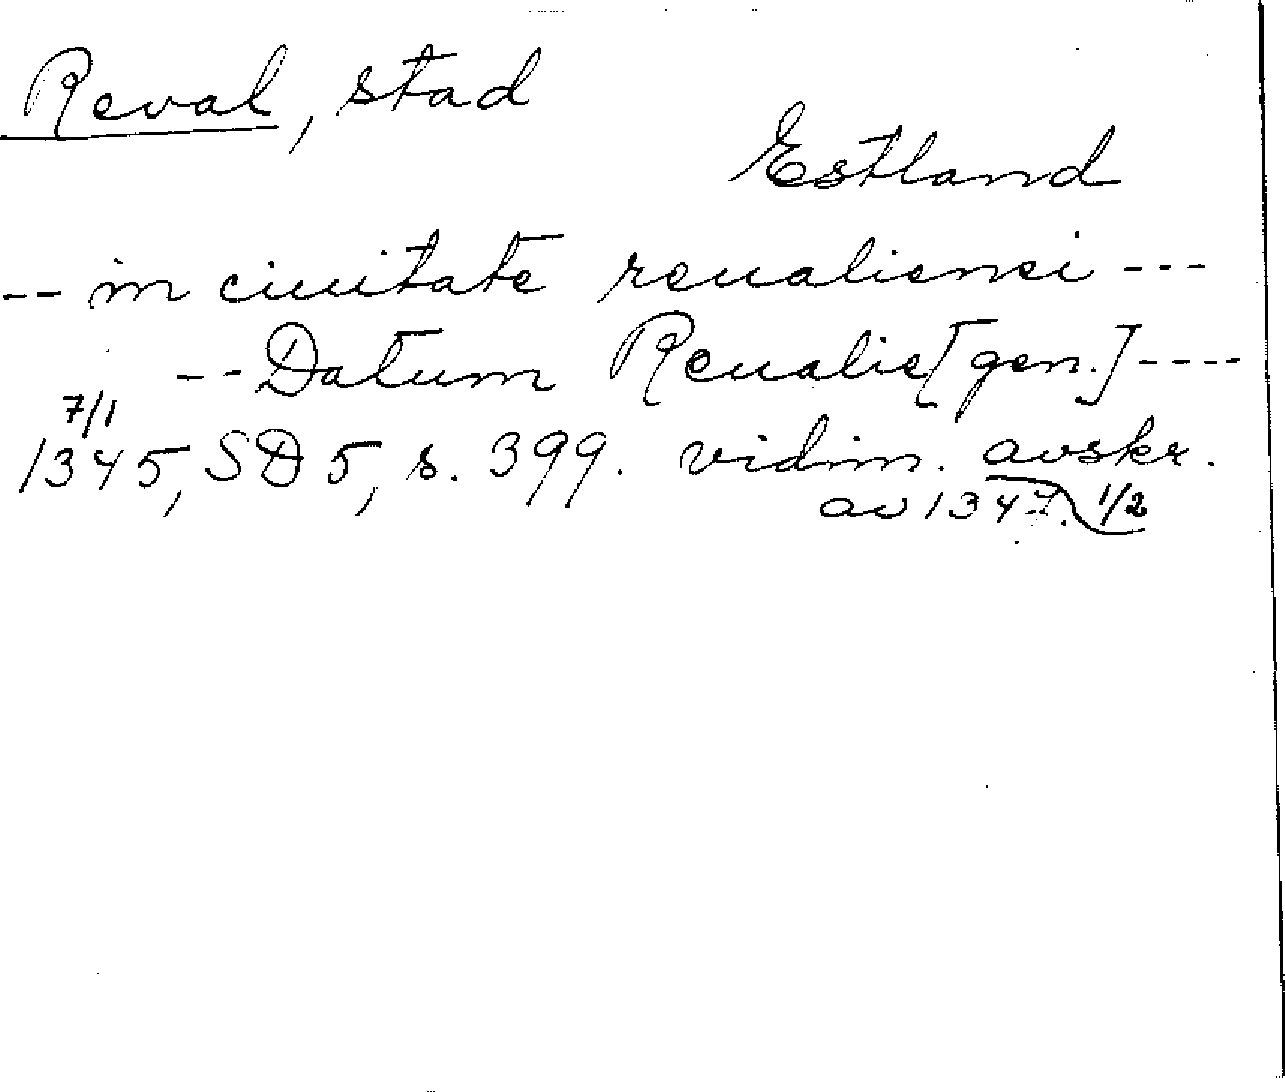 Reval, stad
Estland
-- in ciuitate reualiensi ---
-- Datum Reualie [gen.] ----
7/1
1345, SD 5, s. 399. vidim. avskr.
av 1347. 1/2